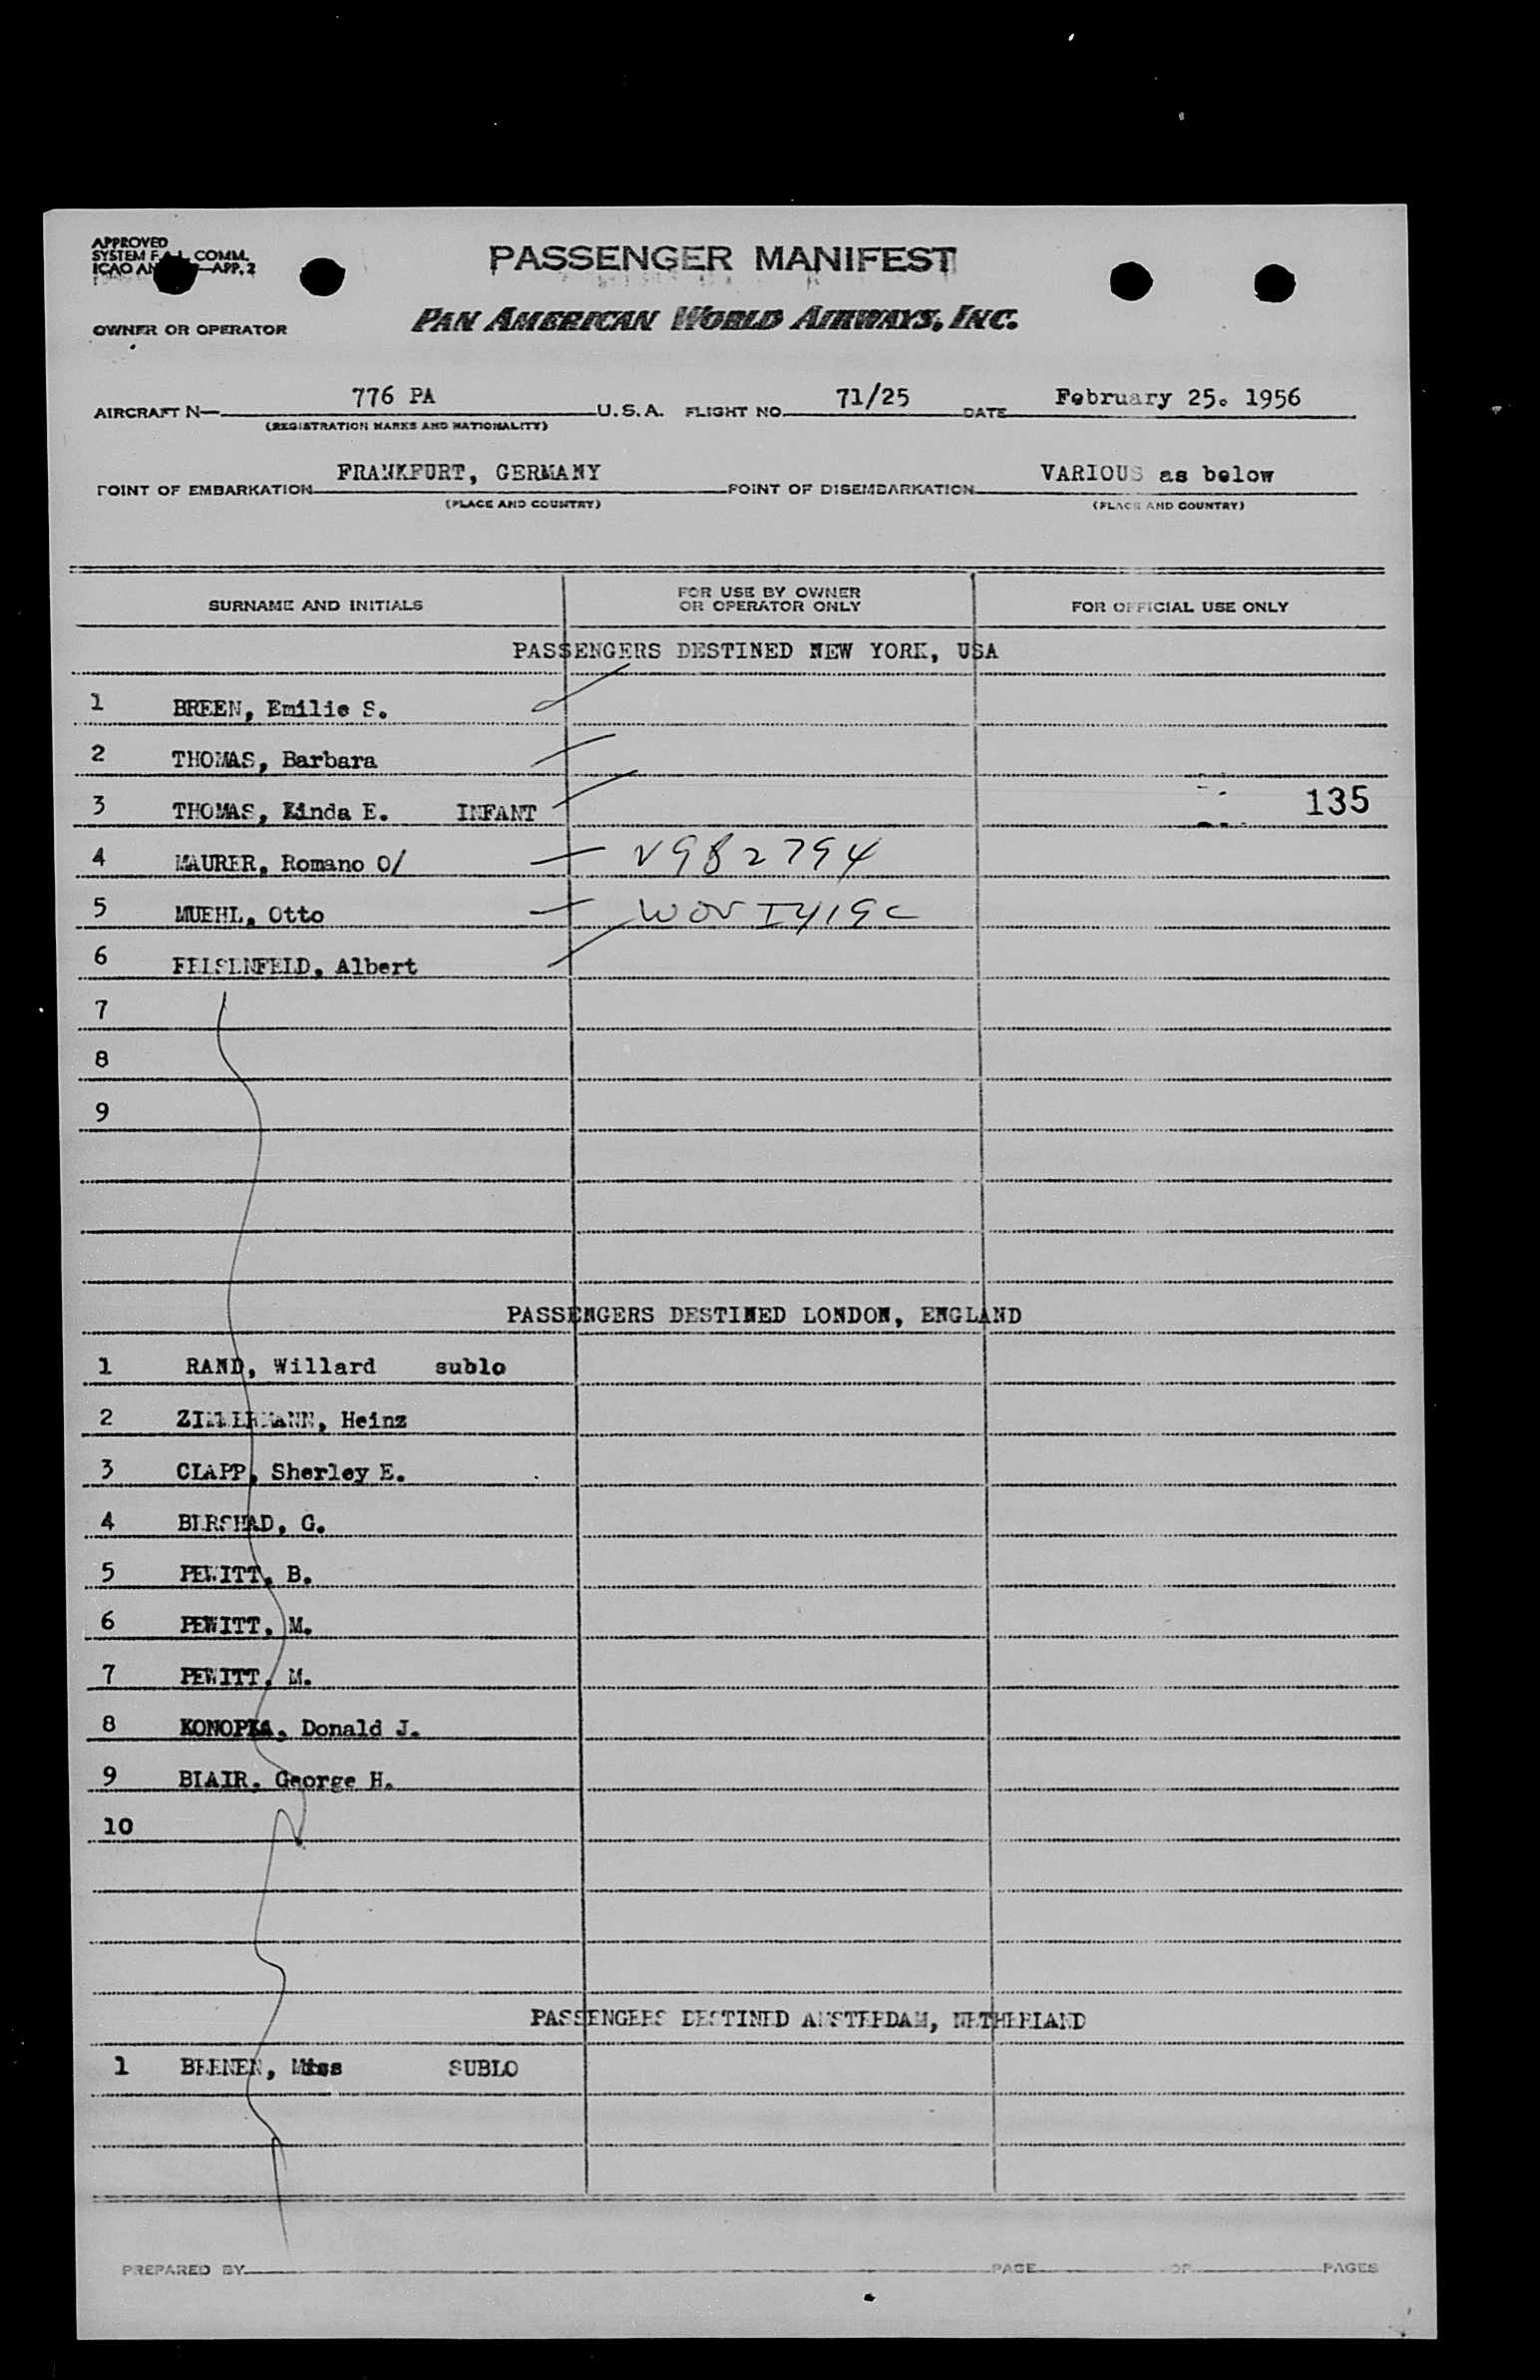 APPROVED
SYSTEM F.A.L. COMM.
ICAO AN —APP. 2
PASSENGER MANIFEST
OWNER OR OPERATOR
PAN AMERICAN WORLD AIRWAYS, INC.
AIRCRAFT N— 776 PA U.S.A. FLIGHT NO. 71/25 DATE February 25. 1956
(REGISTRATION MARKS AND NATIONALITY)
POINT OF EMBARKATION FRANKFURT, GERMANY POINT OF DISEMBARKATION VARIOUS as below
(PLACE AND COUNTRY) (PLACE AND COUNTRY)
SURNAME AND INITIALS FOR USE BY OWNER OR OPERATOR ONLY FOR OFFICIAL USE ONLY
PASSENGERS DESTINED NEW YORK, USA
1 BREEN, Emilie S.
2 THOMAS, Barbara
3 THOMAS, Linda E. INFANT 135
4 MAURER, Romano O/ V982794
5 MUEHL, Otto
6 FELSENFELD, Albert
7
8
9
PASSENGERS DESTINED LONDON, ENGLAND
1 RAND, Willard sublo
2 ZIMMERMANN, Heinz
3 CLAPP, Sherley E.
4 BERSHAD, G.
5 PEWITT, B.
6 PEWITT, M.
7 PEWITT, M.
8 KONOPKA, Donald J.
9 BLAIR, George H.
10
PASSENGERS DESTINED AMSTERDAM, NETHERLAND
1 Miss SUBLO
PREPARED BY PAGE OF PAGES